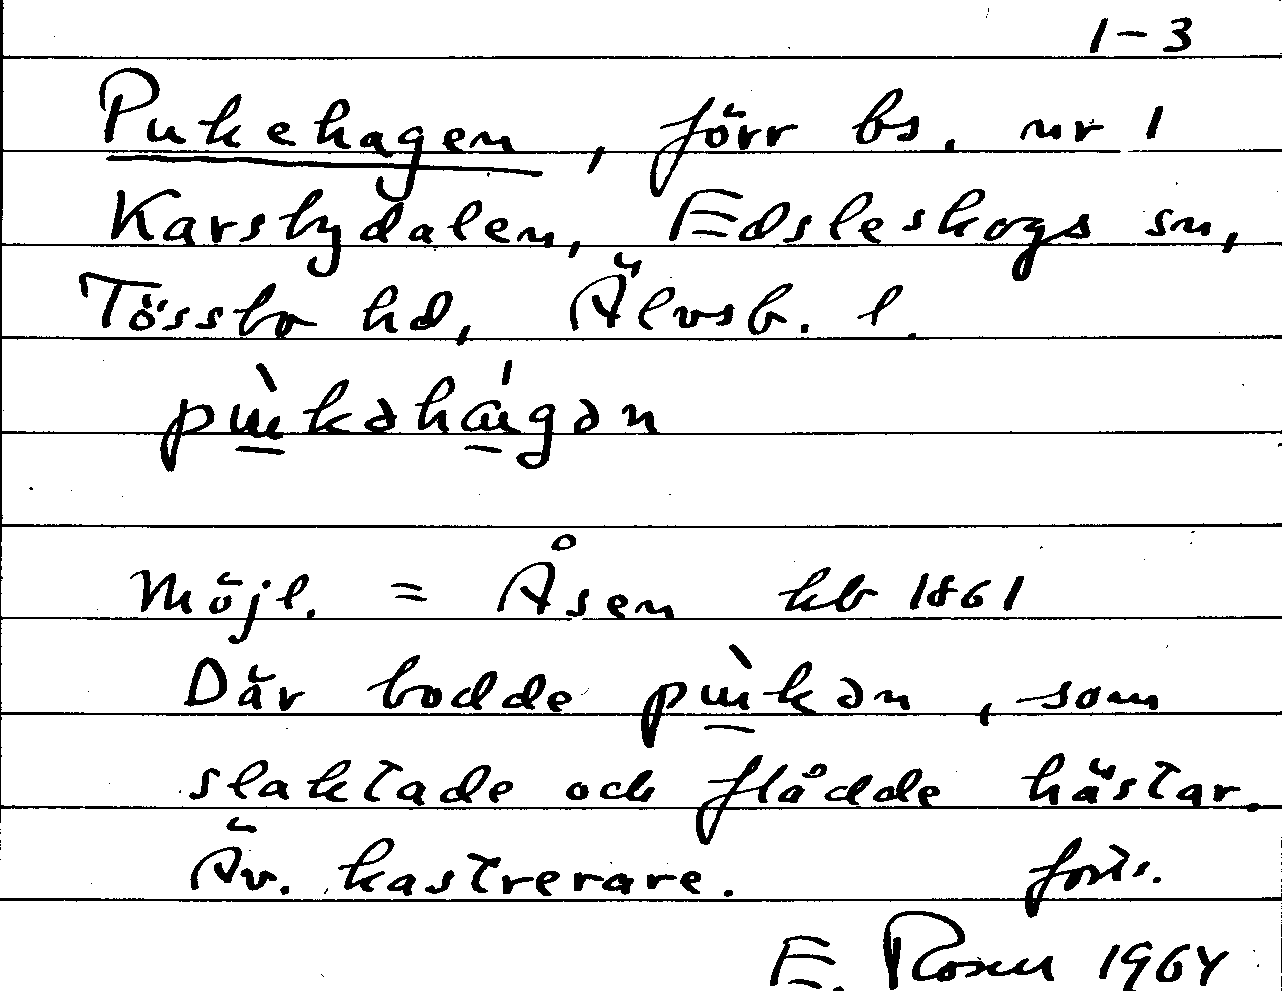 1-3
Pukehagen, förr bs. nr 1
Karsbydalen, Edsleskogs sn,
Tössbo hd, Älvsb. l.
pɯ̀kəhágən
Möjl. = Åsen hb 1861
Där bodde pɯ̀kən, som
slaktade och flådde hästar.
Äv. kastrerare. forts.
E. Rosen 1964